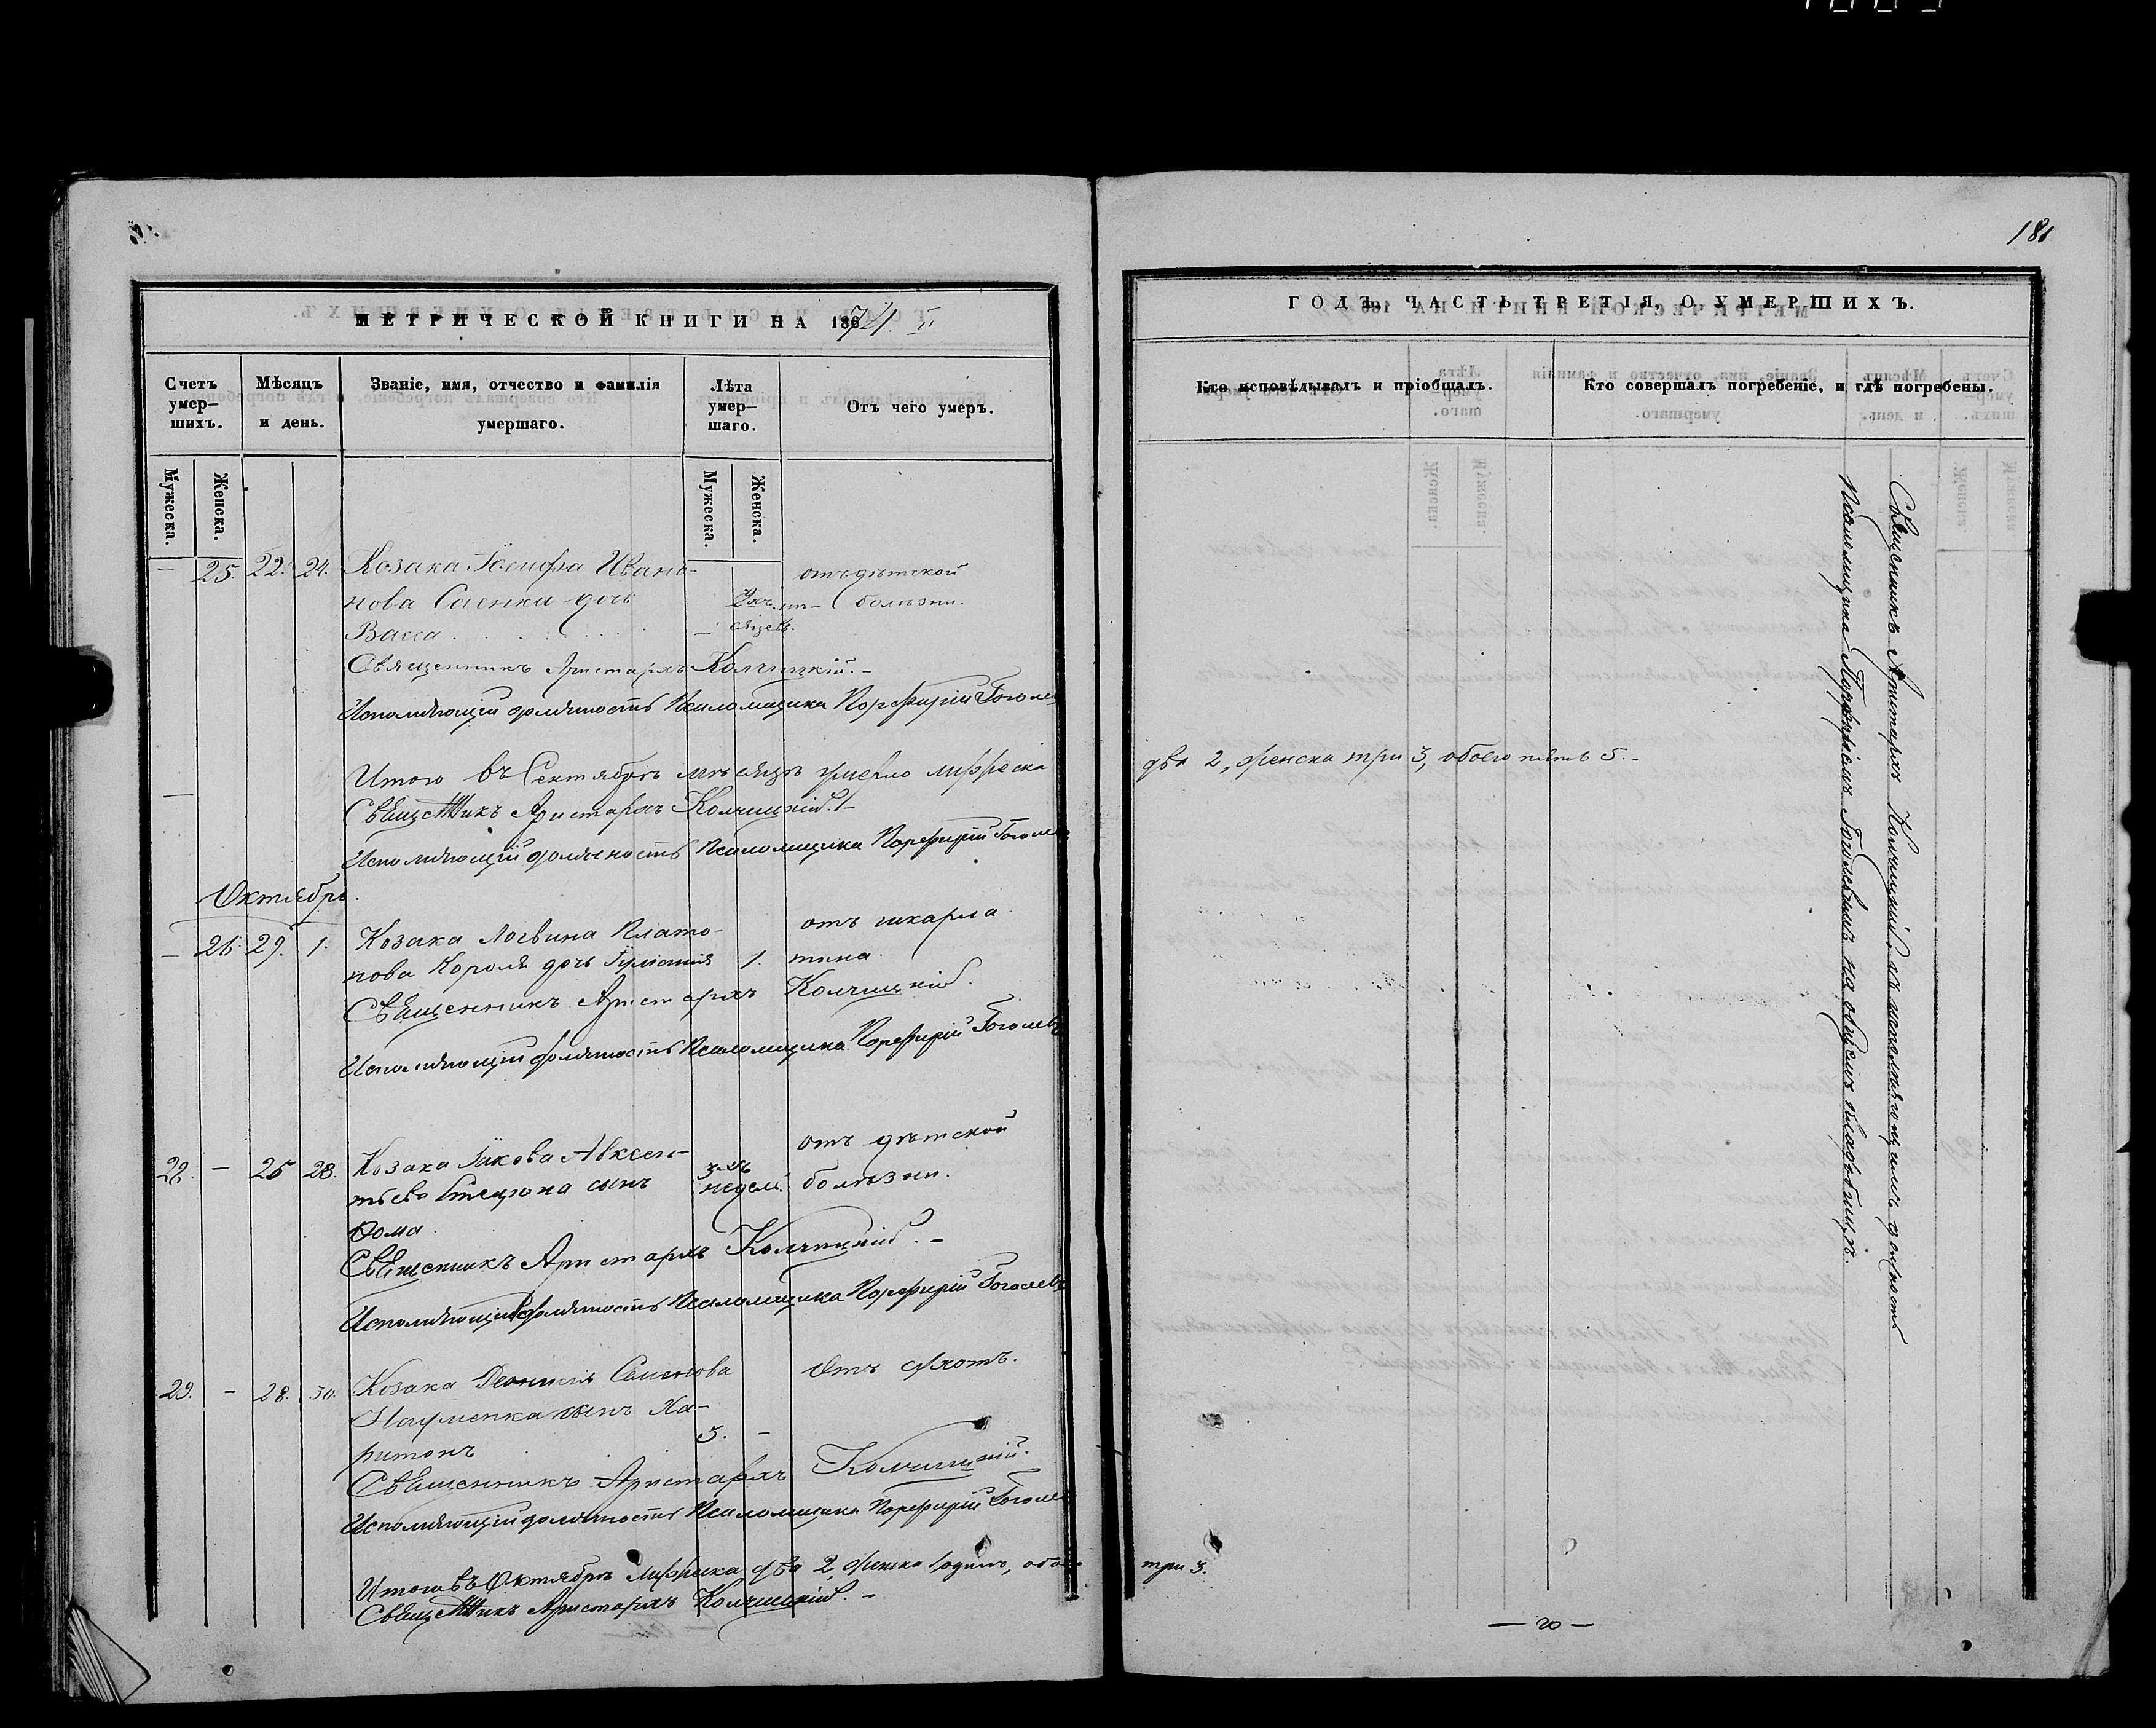 181
МЕТРИЧЕСКОЙ КНИГИ НА 1871.
ГОДЪ, ЧАСТЬ ТРЕТІЯ, О УМЕРШИХЪ.
Счетъ умер–шихъ.
Мѣсяцъ и день.
Званіе, имя, отчество и фамилія умершаго.
Лѣта умер–шаго.
Отъ чего умеръ.
Кто исповѣдывалъ и пріобщалъ.
Кто совершалъ погребеніе, и гдѣ погребены.
Мужеска.
Женска.
Мужеска.
Женска.
— 25. 22. 24. Козака Іосифа Ивано- отъ дѣтской
нова Саенки дочь мѣ- болѣзни.
Васса — сяцевъ.
Священникъ Аристархъ Колчицкій. –
Исполняющій должность Псаломщика Порфирій Гоголев
Итого въ Сентябрѣ мѣсяцѣ умерло мужеска
два 2, женска три 3, обоего пять 5. –
Священникъ Аристархъ Колчицкій. –
Исполняющій должность Псаломщика Порфирій Гоголев
Октябрь.
— 26. 29. 1. Козака Логвина Плато- отъ шкарла
нова Короля дочь Іуліанія 1. тина
Священникъ Аристархъ Колчицкій.
Исполняющій должность Псаломщика Порфирій Гоголевъ
28. — 25 28. Козака Іакова Авксен- отъ дѣтской
тьева сынъ недел. болѣзни.
Ѳома.
Священникъ Аристархъ Колчицкій. –
Исполняющій должность Псаломщика Порфирій Гоголевъ
29. — 28. 30. Козака Діонисія Семенова Отъ сухотъ.
Науменка сынъ Ха-
ритонъ 3. –
Священникъ Аристархъ Колчицкій.
Исполняющій должность Псаломщика Порфирій Гоголев
Итого въ Октябрѣ Мужеска два 2, женска 1 одинъ, обое
три 3.
Священникъ Аристархъ Колчицкій. –
Священникъ Аристархъ Колчицкій, съ исполняющимъ должность
Псаломщика Порфиріемъ Гоголевымъ на общемъ кладбищѣ.
— 20 —